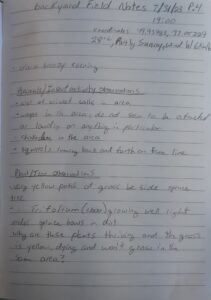 Backyard Field Notes 7/31/23 P.4
19:00
coordinates
28°C, Partly Sunny, wind W 6km/h
- warm breezy evening
Animals/Insect activity observations
- lots of cicada calls in area
- wasps in the area, do not seem to be attacked
or landing on anything in particular
- in the area
- squirrels running back and forth on fence line
Plant/Tree observations
- very yellow patch of grass beside spruce
tree
- Trifolium (clover) growing well right
under spruce bows in dirt
Why are these plants thriving and the grass
is yellow, dying and won't grow in the
same area?